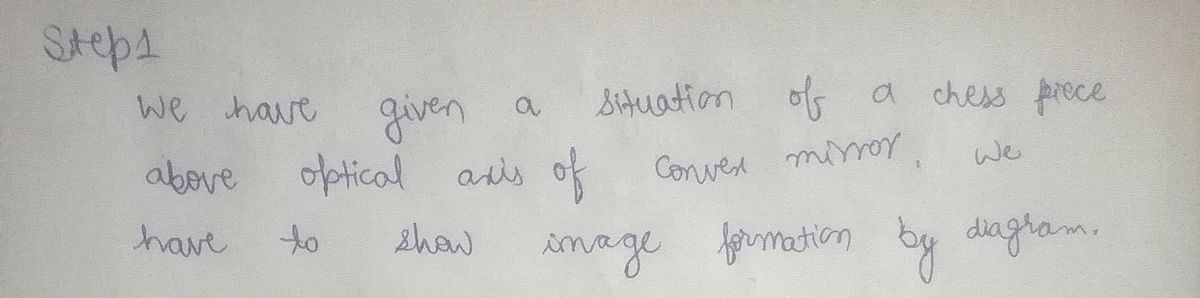 Step1
We have given a situation of a chess piece
above optical axis of Convex mirror, we
have to show image formation by diagram.